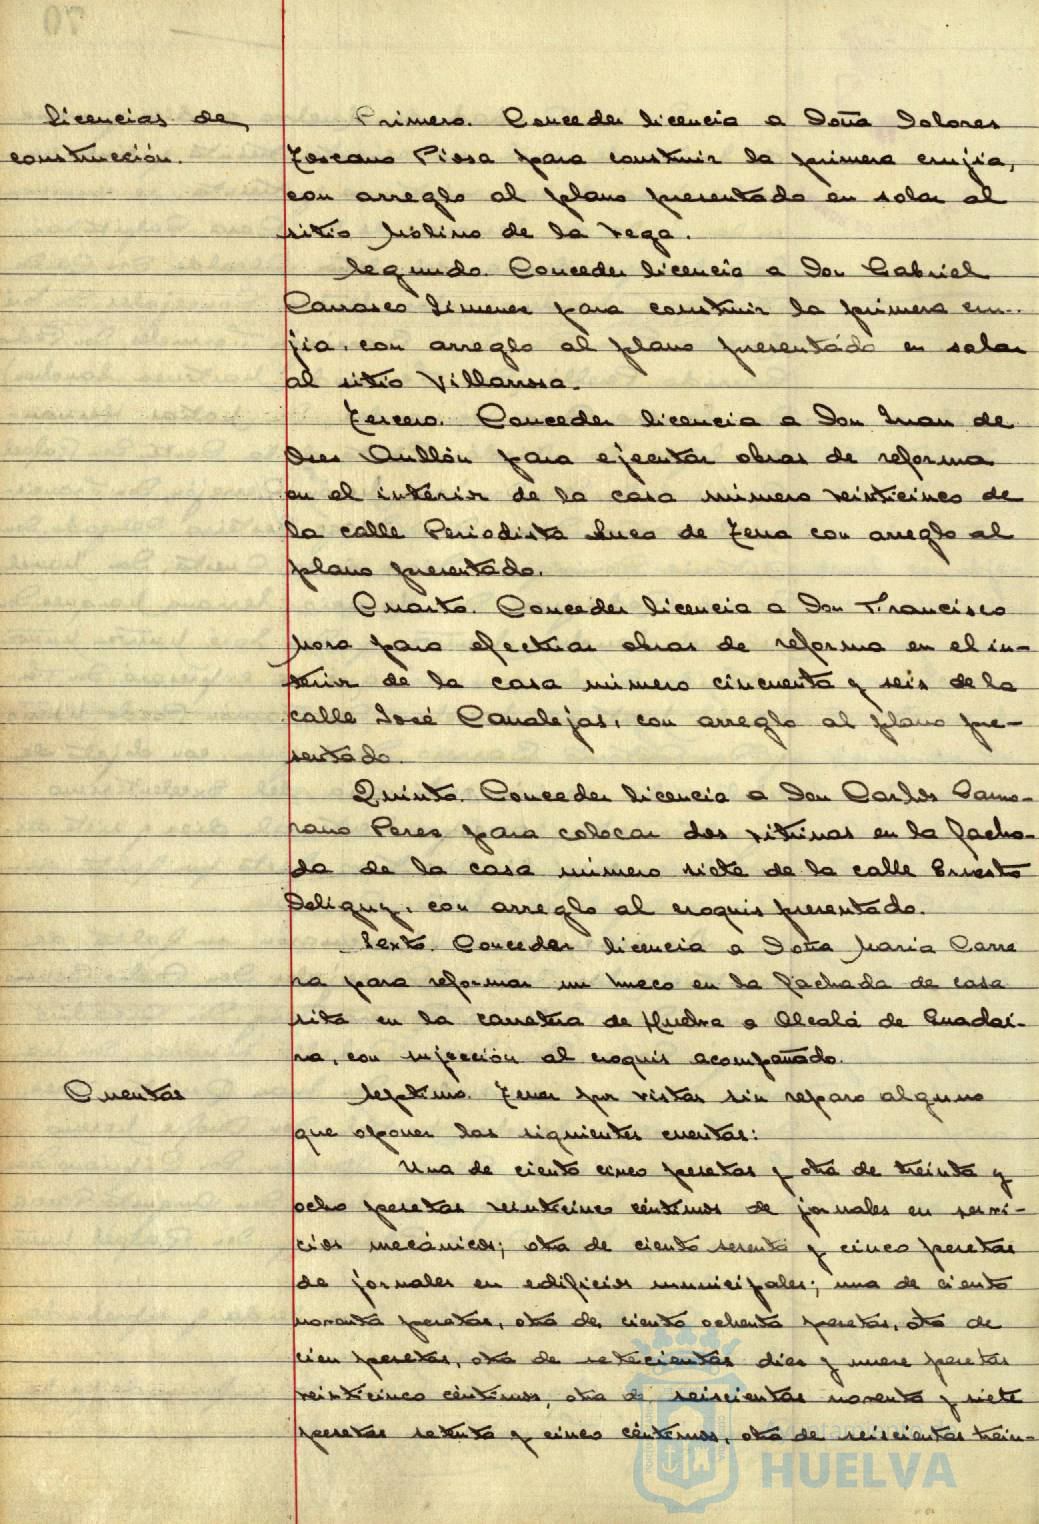 Licencias de
construcción.
Primero. Conceder licencia a Doña Dolores
Toscano Piosa para construir la primera crujia,
con arreglo al plano presentado en solar al
sitio Molino de la Vega.
Segundo. Conceder licencia a Don Gabriel
Carrasco Jimenez para construir la primera cru-
jia, con arreglo al plano presentado en solar
al sitio Villarrosa.
Tercero. Conceder licencia a Don Juan de
Dios Aullón para ejecutar obras de reforma
en el interior de la casa número veinticinco de
la calle Periodista Luca de Tena con arreglo al
plano presentado.
Cuarto. Conceder licencia a Don Francisco
Mora para efectuar obras de reforma en el in-
terior de la casa número cincuenta y seis de la
calle José Canalejas, con arreglo al plano pre-
sentado.
Quinto. Conceder licencia a Don Carlos Zamo-
rano Perez para colocar dos vitrinas en la facha-
da de la casa número siete de la calle Ernesto
Deligny, con arreglo al croquis presentado.
Sexto. Conceder licencia a Doña Maria Carre
ra para reformar un hueco en la fachada de casa
sita en la carretera de Huelva a Alcalá de Guadai-
ra, con sujección al croquis acompañado.
Cuentas
Septimo. Tener por vistas sin reparo alguno
que oponer las siguientes cuentas:
Una de ciento cinco pesetas y otra de treinta y
ocho pesetas veinticinco céntimos de jornales en servi-
cios mecánicos; otra de ciento sesenta y cinco pesetas
de jornales en edificios municipales; una de ciento
noventa pesetas, otra de ciento ochenta pesetas, otra de
cien pesetas, otra de setecientas diez y nueve pesetas
veinticinco céntimos, otra de seiscientas noventa y siete
pesetas setenta y cinco céntimos, otra de seiscientas trein-
Ayuntamiento
HUELVA